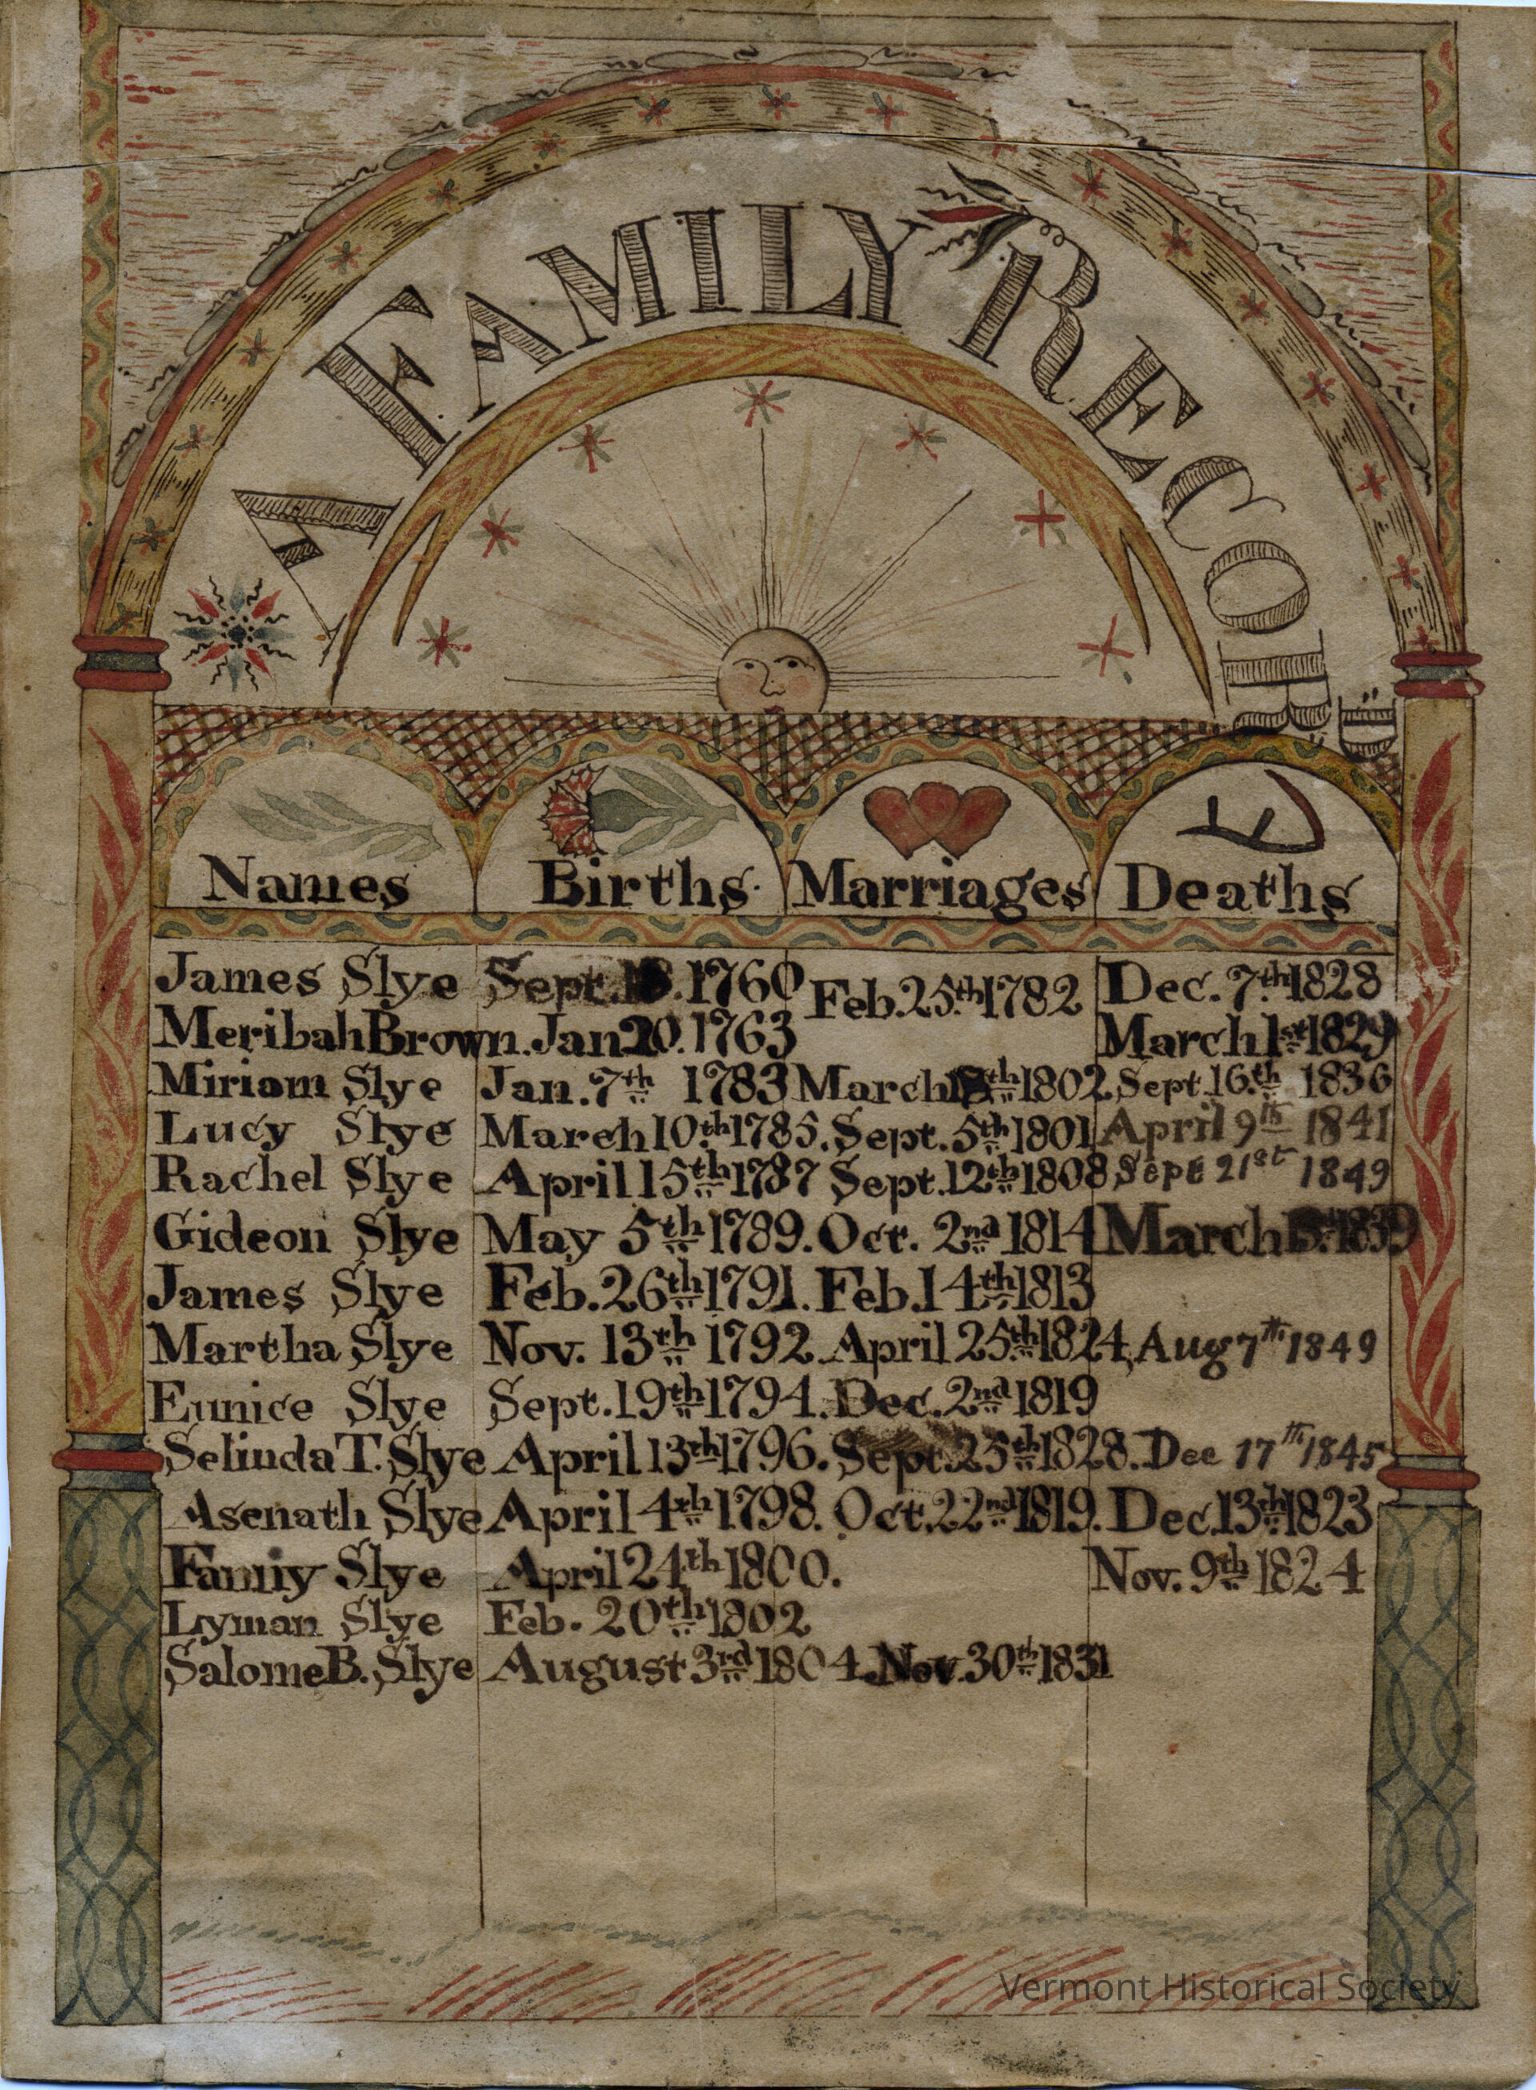 A FAMILY RECORD
Names Births Marriages Deaths
James Slye Sept. 1760 Feb. 25th 1782 Dec. 7th 1828
Meribah Brown. Jan 20. 1763 March 1st 1829
Miriam Slye Jan. 7th 1783 March 1802 Sept. 16th 1836
Lucy Slye March 10th 1785. Sept. 5th 1801 April 9th 1841
Rachel Slye April 15th 1787 Sept. 12th 1808 Sept 21st 1849
Gideon Slye May 5th 1789. Oct. 2nd 1814 March 1839
James Slye Feb. 26th 1791. Feb. 14th 1813
Martha Slye Nov. 13th 1792. April 25th 1824, Aug 7th 1849
Eunice Slye Sept. 19th 1794. Dec. 2nd 1819
Selinda T. Slye April 13th 1796. Sept. 25th 1828. Dec 17th 1845
Asenath Slye April 4th 1798. Oct. 22nd 1819. Dec. 13th 1823
Fanny Slye April 24th 1800. Nov. 9th 1824
Lyman Slye Feb. 20th 1802
Salome B. Slye August 3rd 1804. Nov. 30th 1831
Vermont Historical Society